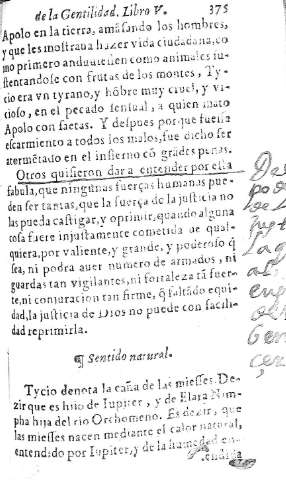 de la Gentilidad. Libro V. 375
Apolo en la tierra, amãsando los hombres,
y que les mostraua hazer vida ciudadana, co
mo primero anduuiessen como animales su-
stentandose con frutas de los montes, Ty-
cio era vn tyrano, y hõbre muy cruel, y vi-
cioso, en el pecado sensual, a quien mato
Apolo con saetas. Y despues porque fuesse
escarmiento a todos los malos, fue dicho ser
atormẽtado en el infierno cõ grãdes penas.
Otros quisieron dar a entender por esta
fabula, que ningunas fuerças humanas pue-
den ser tantas, que la fuerça de la justicia no
las pueda castigar, y oprimir, quando alguna
cosa fuere injustamente cometida de qual-
quiera, por valiente, y grande, y poderoso q̃
sea, ni podra auer numero de armados, ni
guardas tan vigilantes, ni fortaleza tã fuer-
te, ni conjuracion tan firme, q̃ faltãdo equi-
dad, la justicia de Dios no puede con facili-
dad reprimirla.
¶ Sentido natural.
Tycio denota la caña de las miesses. De-
zir que es hijo de Iupiter, y de Elara Nim-
pha hija del rio Orchomeno. Es dezir, que
las miesses nacen mediante el calor natural,
entendido por Iupiter, y de la humedad en-